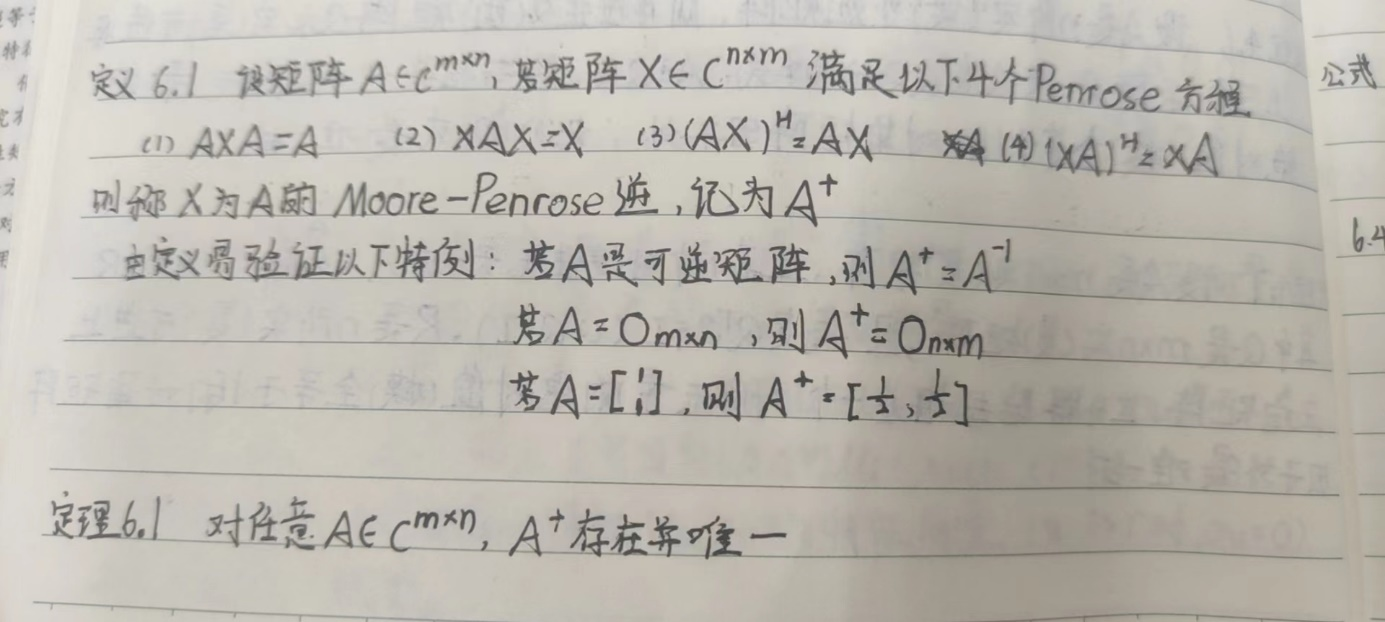 定义 6.1 设矩阵 A∈C^{m×n}, 若矩阵 X∈C^{n×m} 满足以下4个Penrose 方程
(1) AXA=A (2) XAX=X (3) (AX)^H=AX (4) (XA)^H=XA
则称 X 为 A 的 Moore-Penrose 逆, 记为 A^+
由定义易验证以下特例: 若 A 是可逆矩阵, 则 A^+=A^{-1}
若 A=O_{m×n}, 则 A^+=O_{n×m}
若 A=[1;1], 则 A^+=[1/2, 1/2]
定理6.1 对任意 A∈C^{m×n}, A^+ 存在并唯一
公式
6.4